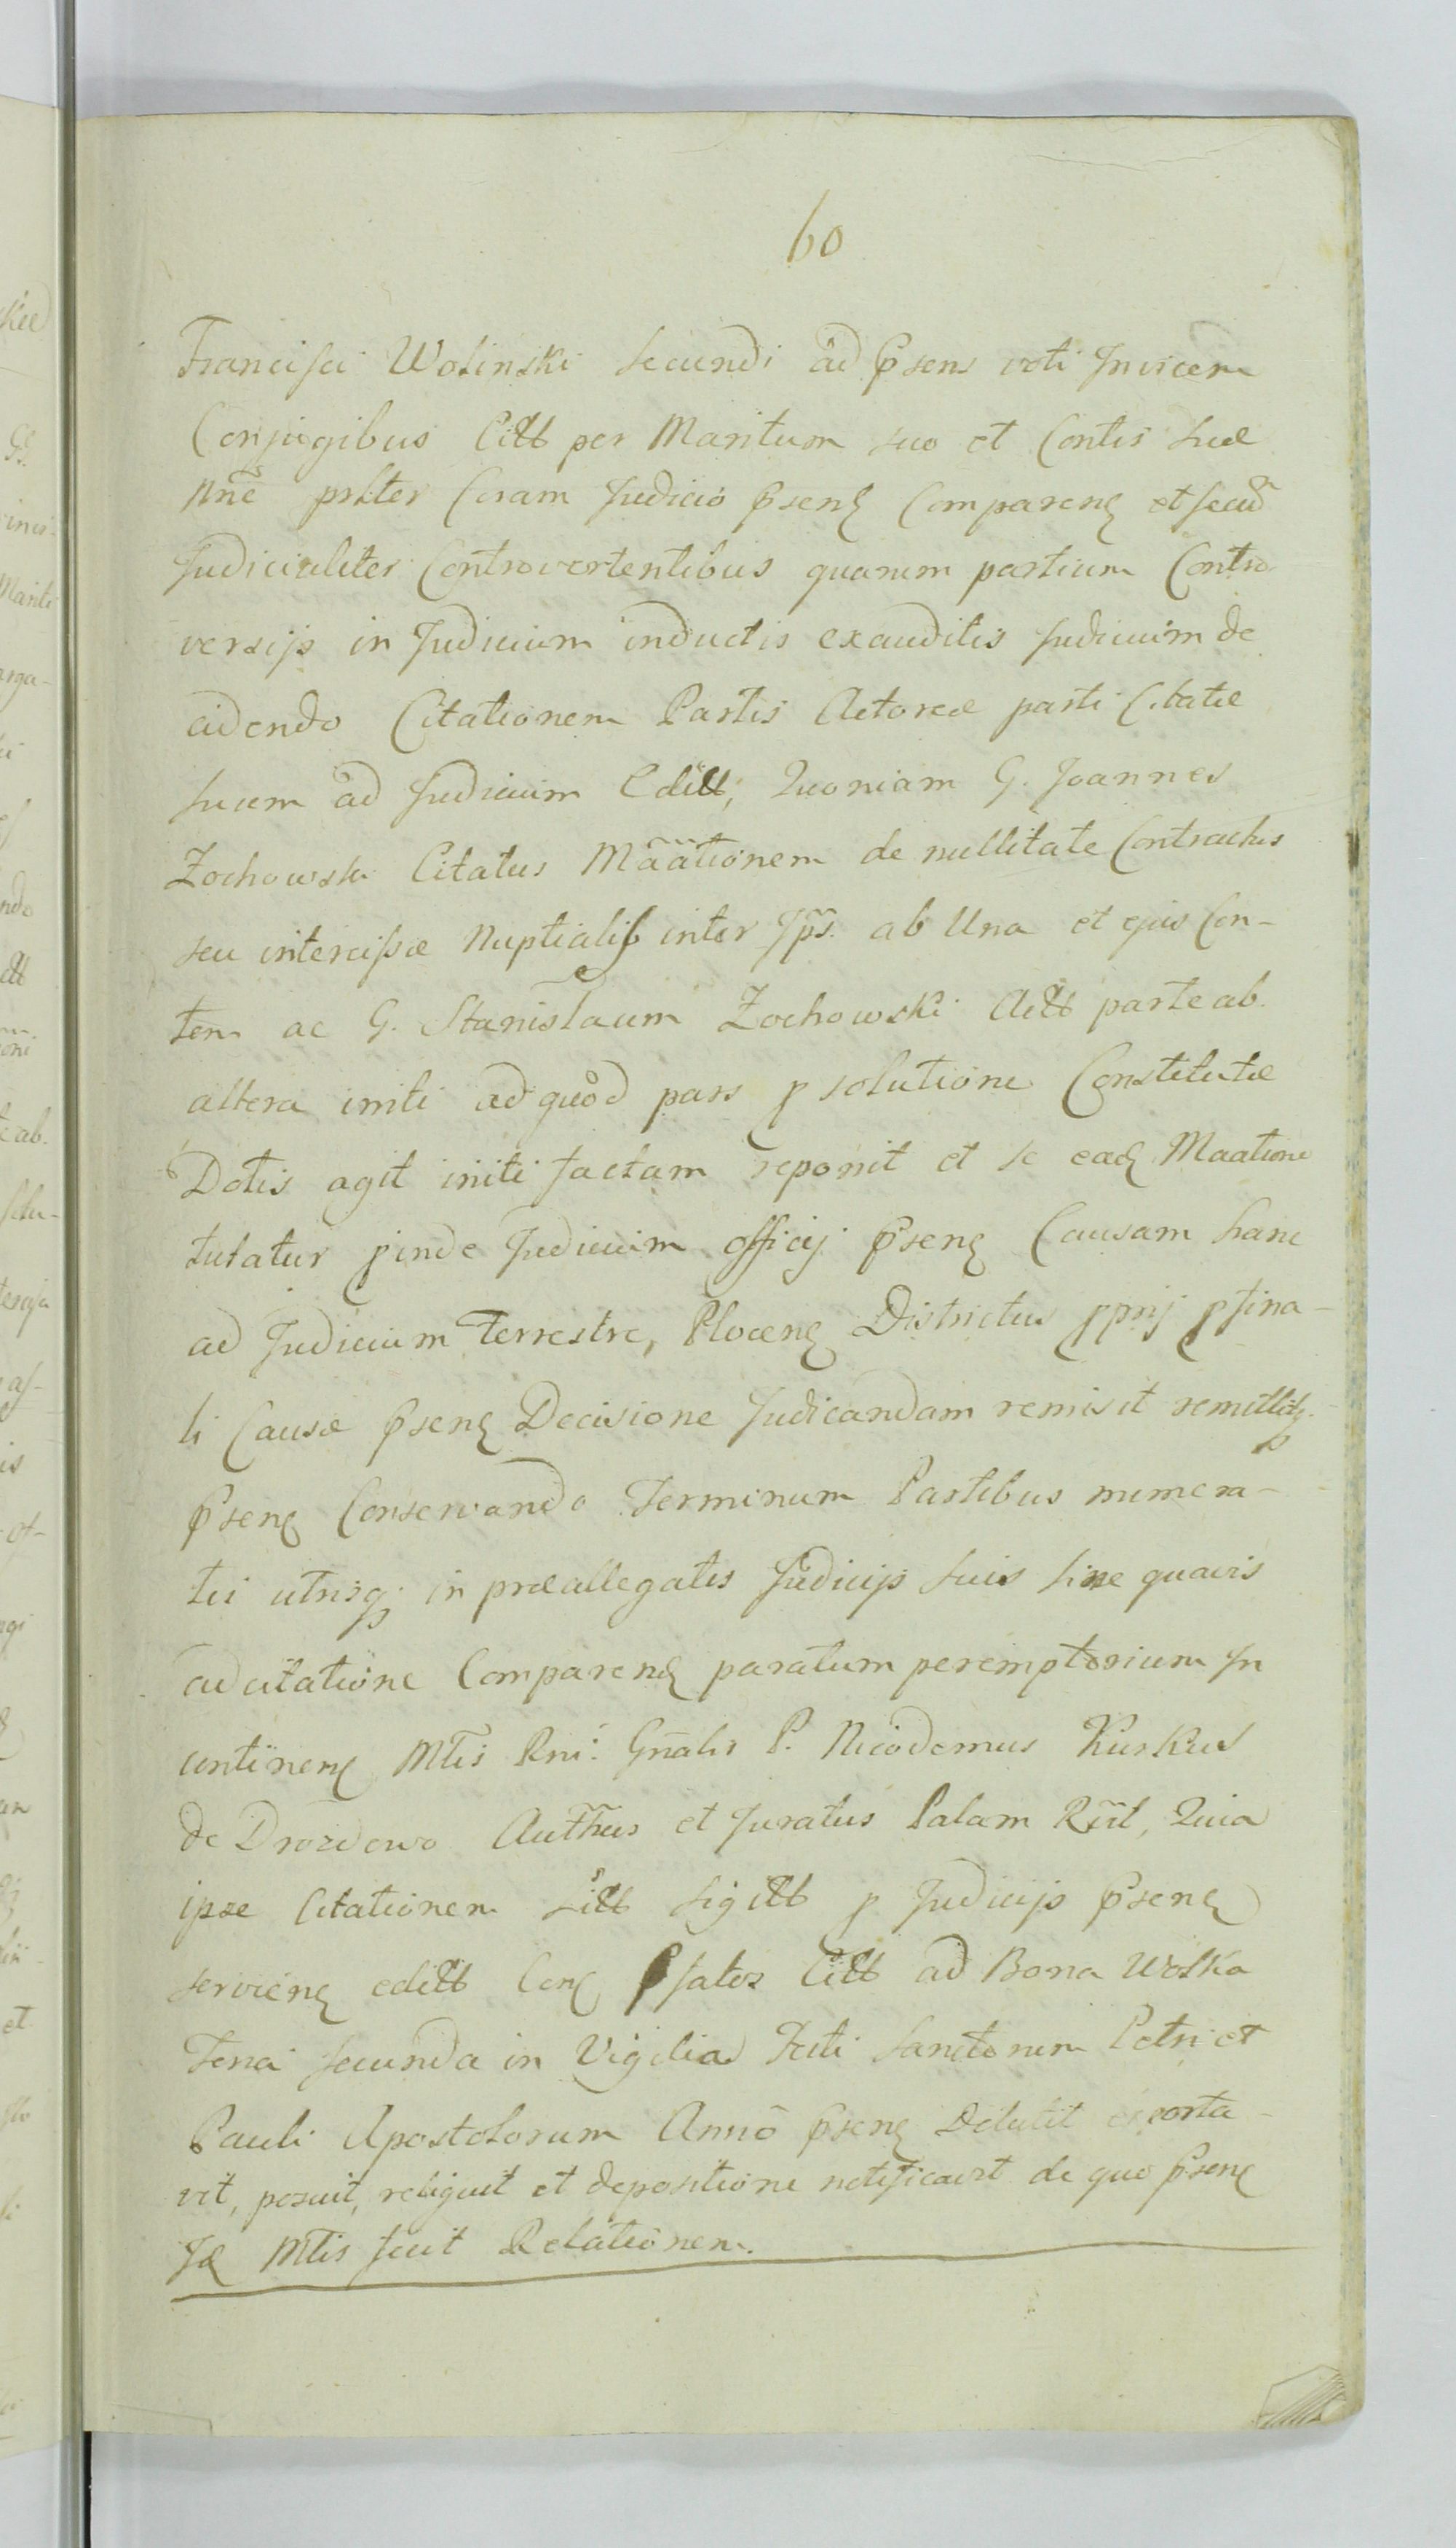 60
Francisci Wolinski secundi ad Psens voti Invicem
Conjugibus Citt per Maritum suo et Contis suæ
Nnẽ psltter Coram Judicio Psenȩ Comparenȩ et secũ
Judicialiter Controvertentibus quarum partium Contro
versijs in Judicium inductis exauditis Judicium de
cidendo Citationem Partis Actoreæ parti Citatæ
suum ad Judicium Editt, Quoniam G. Joannes
Zochowski Citatus Mããtionem de nullitate Contractus
seu intercisæ Nuptialis inter Ips̃. ab Una et ejus Con-
tem ac G. Stanislaum Zochowski Actt parte ab
altera initi ad quod pars p solutione Constitutæ
Dotis agit initi factam reponit et se eadȩ Maatione
tutatur pinde Judicium officij Psenȩ Causam hanc
ad Judicium Terrestre, Plocenȩ Districtus pprij p fina-
li Causæ Psenȩ Decisione Judicandam remisit remittitqȝ
Psenȩ Conservando Terminum Partibus numera-
tis utrisqȝ in præallegatis Judicijs suis sine quavis
adcitatione Comparendȩ paratum peremptorium In
continenȩ Mtis Rni. Gñalis P. Nicodemus Kurkus
de Drozdowo Auth̃us et Juratus Palam Rr̃it, Quia
ipse Citationem Litt Sigitt p Judicijs Psenȩ
servienȩ editt Conȩ Psatos Citt ad Bona Wolka
Feria secunda in Vigilia Festi Sanctorum Petri et
Pauli Apostolorum Anno Psenȩ Detulit exporta-
vit, posuit, reliquit et depositione notificavit de quo Psenȩ
Mtis fecit Relationem.